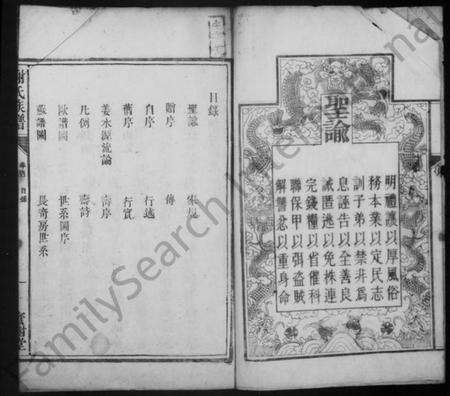 聖諭
明禮讓以厚風俗
務本業以定民志
訓子弟以禁非為
息誣告以全善良
誡匿逃以免株連
完錢糧以省催科
聯保甲以弭盜賊
解讐忿以重身命
目錄
聖諭
贈序
自序
舊序
姜水源流論
凡例
歐譜圖
蘇譜圖
傳
行述
行實
壽序
壽詩
世系圖序
長奇房世系
謝氏族譜
目錄
FamilySearch International